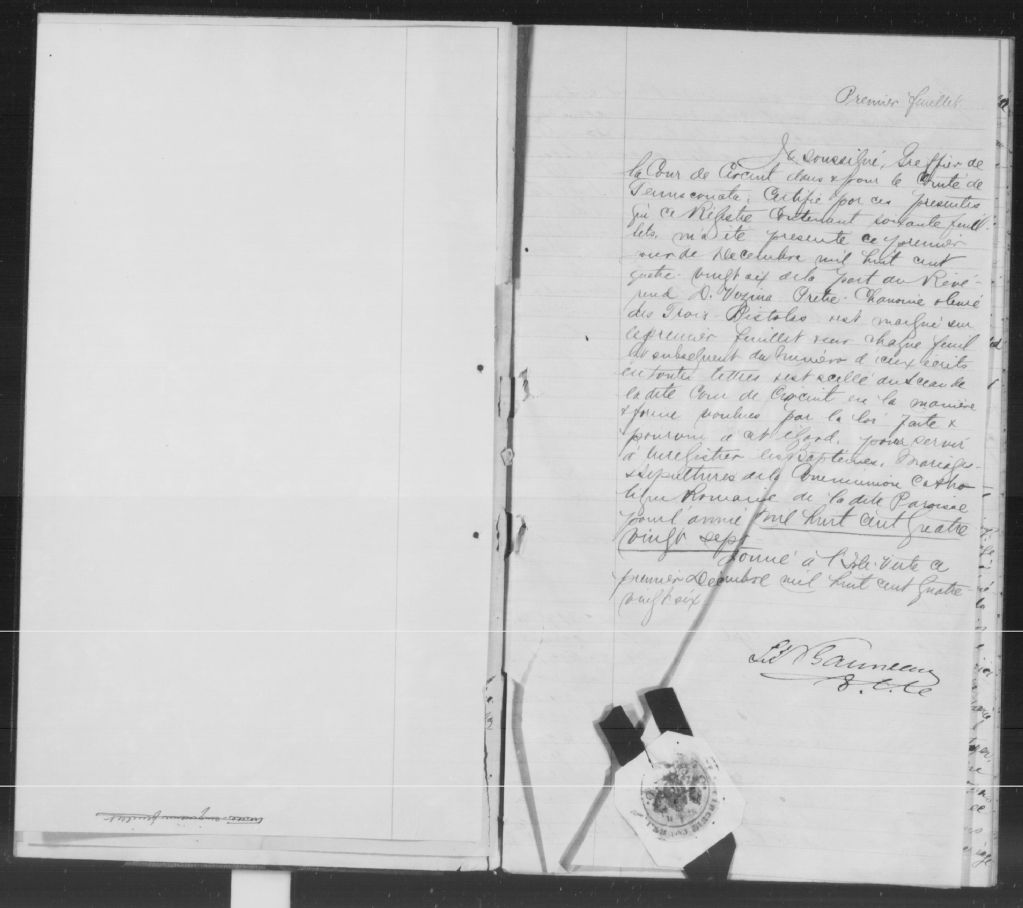 Premier feuillet
Je soussigné, Greffier de
la Cour de Circuit dans & pour le Comté de
Temiscouata, Certifie par ces presentes
que ce Régistre Contenant soixante feuil-
lets, m'a été presenté ce premier
jour de Decembre mil huit cent
quatre-vingt six de la part du Révé-
rend D. Vezina Ptetre-Chanoine & curé
des Trois-Pistoles est marqué sur
le premier feuillet & sur chaque feuil
let subsequent du Numéro d'iceux écrits
en toutes lettres & est scellé du Sceau de
la dite Cour de Circuit en la manière
& forme voulues par la loi faite &
pourvue à cet égard, pour servir
à Enregistrer les Baptemes, Mariages
& Sepultures de la Communion Catho
lique Romaine de la dite Paroisse
pour l'année mil huit cent quatre
vingt sept
Donné à l'Isle-Verte ce
premier Decembre mil huit cent quatre-
vingt six
Gauvreau
feuillet